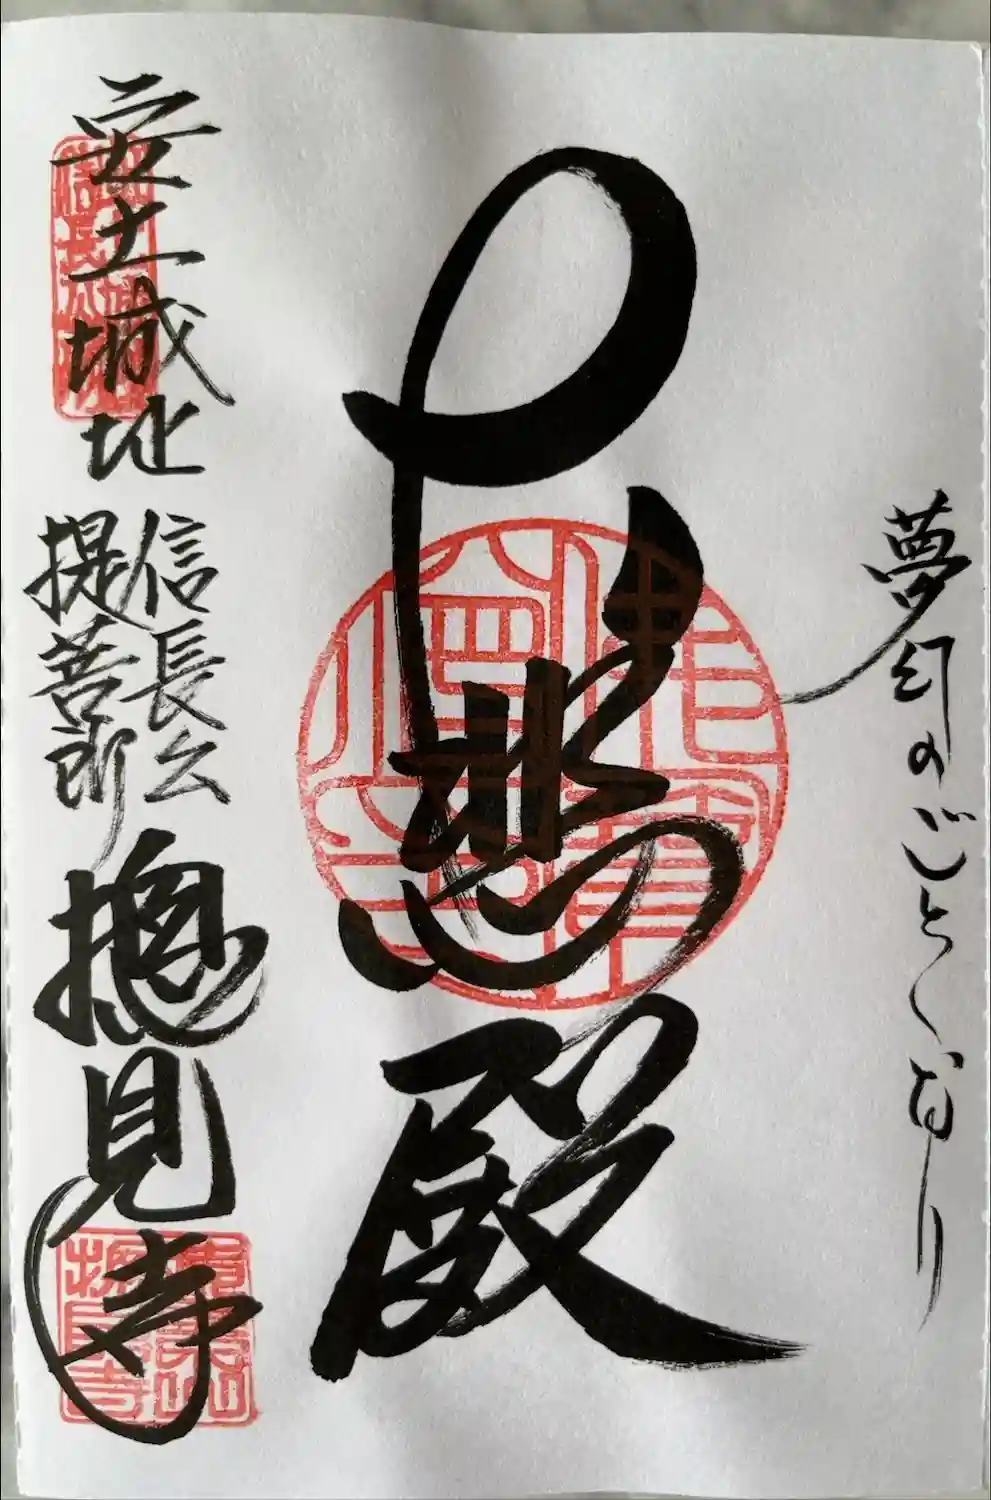 夢幻のごとくなり
大悲殿
安土城址
信長公
提菩所
摠見寺